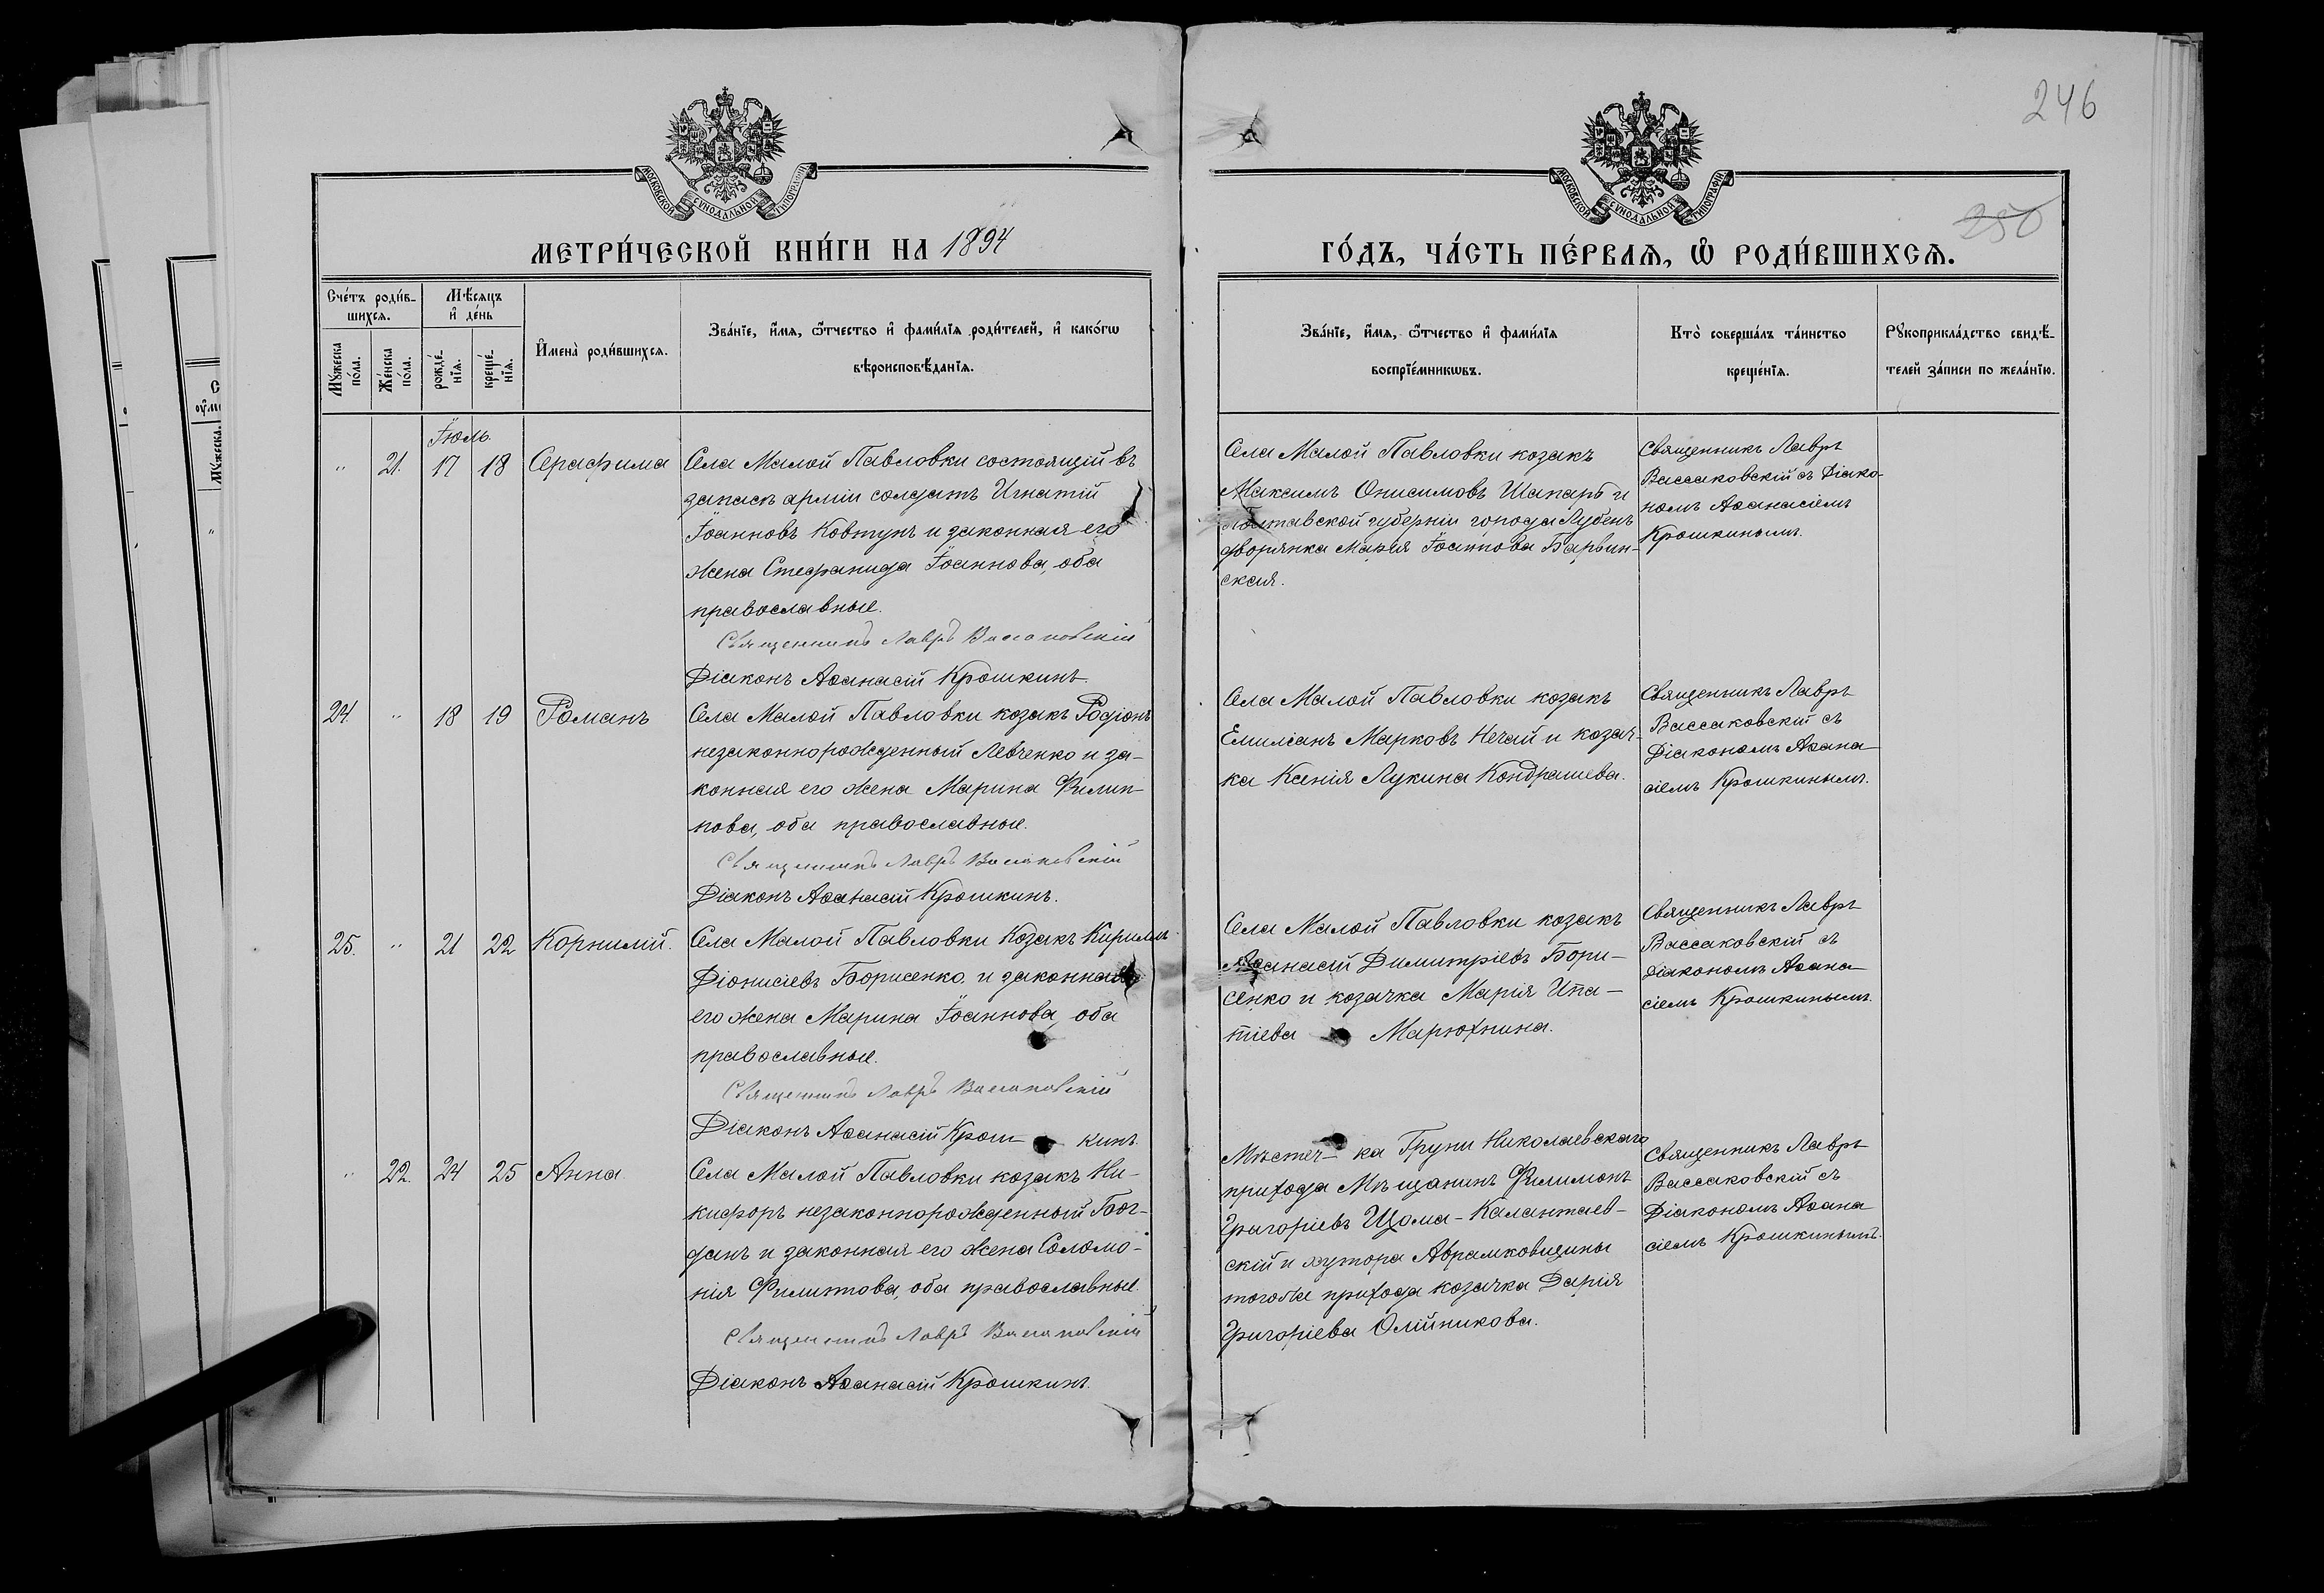 246
250
МОСКОВСКОЙ СѴНОДАЛЬНОЙ ТИПОГРАФІИ
МОСКОВСКОЙ СѴНОДАЛЬНОЙ ТИПОГРАФІИ
МЕТРИ́ЧЕСКОЙ КНИ́ГИ НА 1894
ГО́ДЪ, ЧА́СТЬ ПЕ́РВАѦ, Ѽ РОДИ́ВШИХСѦ.
Сче́тъ роди́в-
шихсѧ.
Мꙋжеска по́ла.
Же́нска по́ла.
Мѣ́сѧцъ
и҆ де́нь
рожде́-
нїѧ.
креще́-
нїѧ.
И҆мена̀ роди́вшихсѧ.
Зва́нїе, и҆́мѧ, ѻ҆́тчество и҆ фами́лїѧ роди́телей, и҆ како́гѡ
вѣроисповѣ́данїѧ.
Зва́нїе, и҆́мѧ, ѻ҆́тчество и҆ фами́лїѧ
воспрїе́мникѡвъ.
Кто̀ соверша́лъ та́инство
креще́нїѧ.
Рꙋкоприкла́дство свидѣ́-
телей за́писи по жела́нїю.
Іюль.
" 21. 17 18 Серафима
Села Малой Павловки состоящій въ
запасѣ арміи солдатъ Игнатій
Іоанновъ Ковтунъ и законная его
жена Стефанида Іоаннова, оба
православные.
Священникъ Лавръ Вассаковскій
Діаконъ Аѳанасій Крошкинъ.
Села Малой Павловки козакъ
Максимъ Онисимовъ Шапаръ и
Полтавской губерніи города Лубенъ
дворянка Марія Іоаннова Барвин-
ская.
Священникъ Лавръ
Вассаковскій съ Діако-
номъ Аѳанасіемъ
Крошкинымъ.
24. " 18 19 Романъ
Села Малой Павловки козакъ Родіонъ
незаконнорожденный Левченко и за-
конная его жена Марина Филип-
пова, оба православные.
Священникъ Лавръ Вассаковскій
Діаконъ Аѳанасій Крошкинъ.
Села Малой Павловки козакъ
Емиліанъ Марковъ Нечай и козач-
ка Ксенія Лукина Кондрашева.
Священникъ Лавръ
Вассаковскій съ
Діакономъ Аѳана-
сіемъ Крошкинымъ.
25. " 21 22 Корнилій.
Села Малой Павловки Козакъ Кириллъ
Діонисіевъ Борисенко и законная
его жена Марина Іоаннова, оба
православные.
Священникъ Лавръ Вассаковскій
Діаконъ Аѳанасій Крош- кинъ
Села Малой Павловки козакъ
Аѳанасій Димитріевъ Бори-
сенко и козачка Марія Ипа-
тіева Марюхнина.
Священникъ Лавръ
Вассаковскій съ
Діакономъ Аѳана-
сіемъ Крошкинымъ.
" 22. 24 25 Анна
Села Малой Павловки козакъ Ни-
кифоръ незаконнорожденный Бог-
данъ и законная его жена Соломо-
нія Филиппова, оба православные.
Священникъ Лавръ Вассаковскій
Діаконъ Аѳанасій Крошкинъ.
Мѣстеч- ка Груни Николаевскаго
прихода Мѣщанинъ Филимонъ
Григоріевъ Щома-Калантаев-
скій и хутора Аврамковщины
тогоже прихода козачка Дарія
Григоріева Олійникова.
Священникъ Лавръ
Вассаковскій съ
Діакономъ Аѳана-
сіемъ Крошкинымъ.